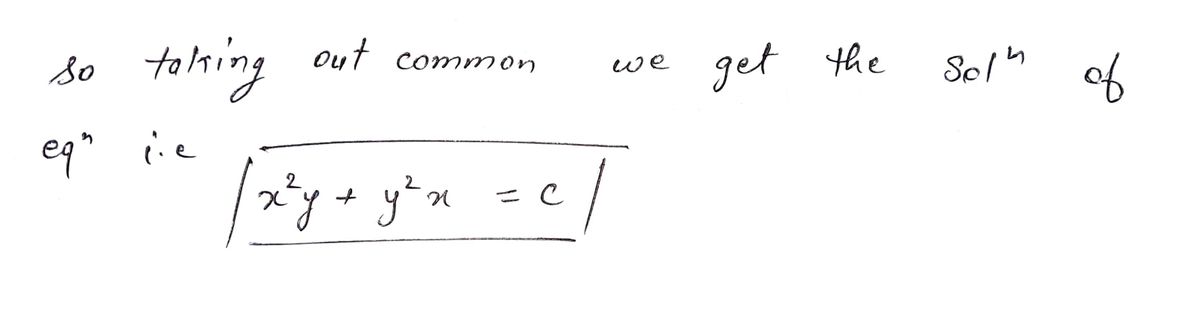 so taking out common we get the solⁿ of
eqⁿ i.e
x²y + y²x = c